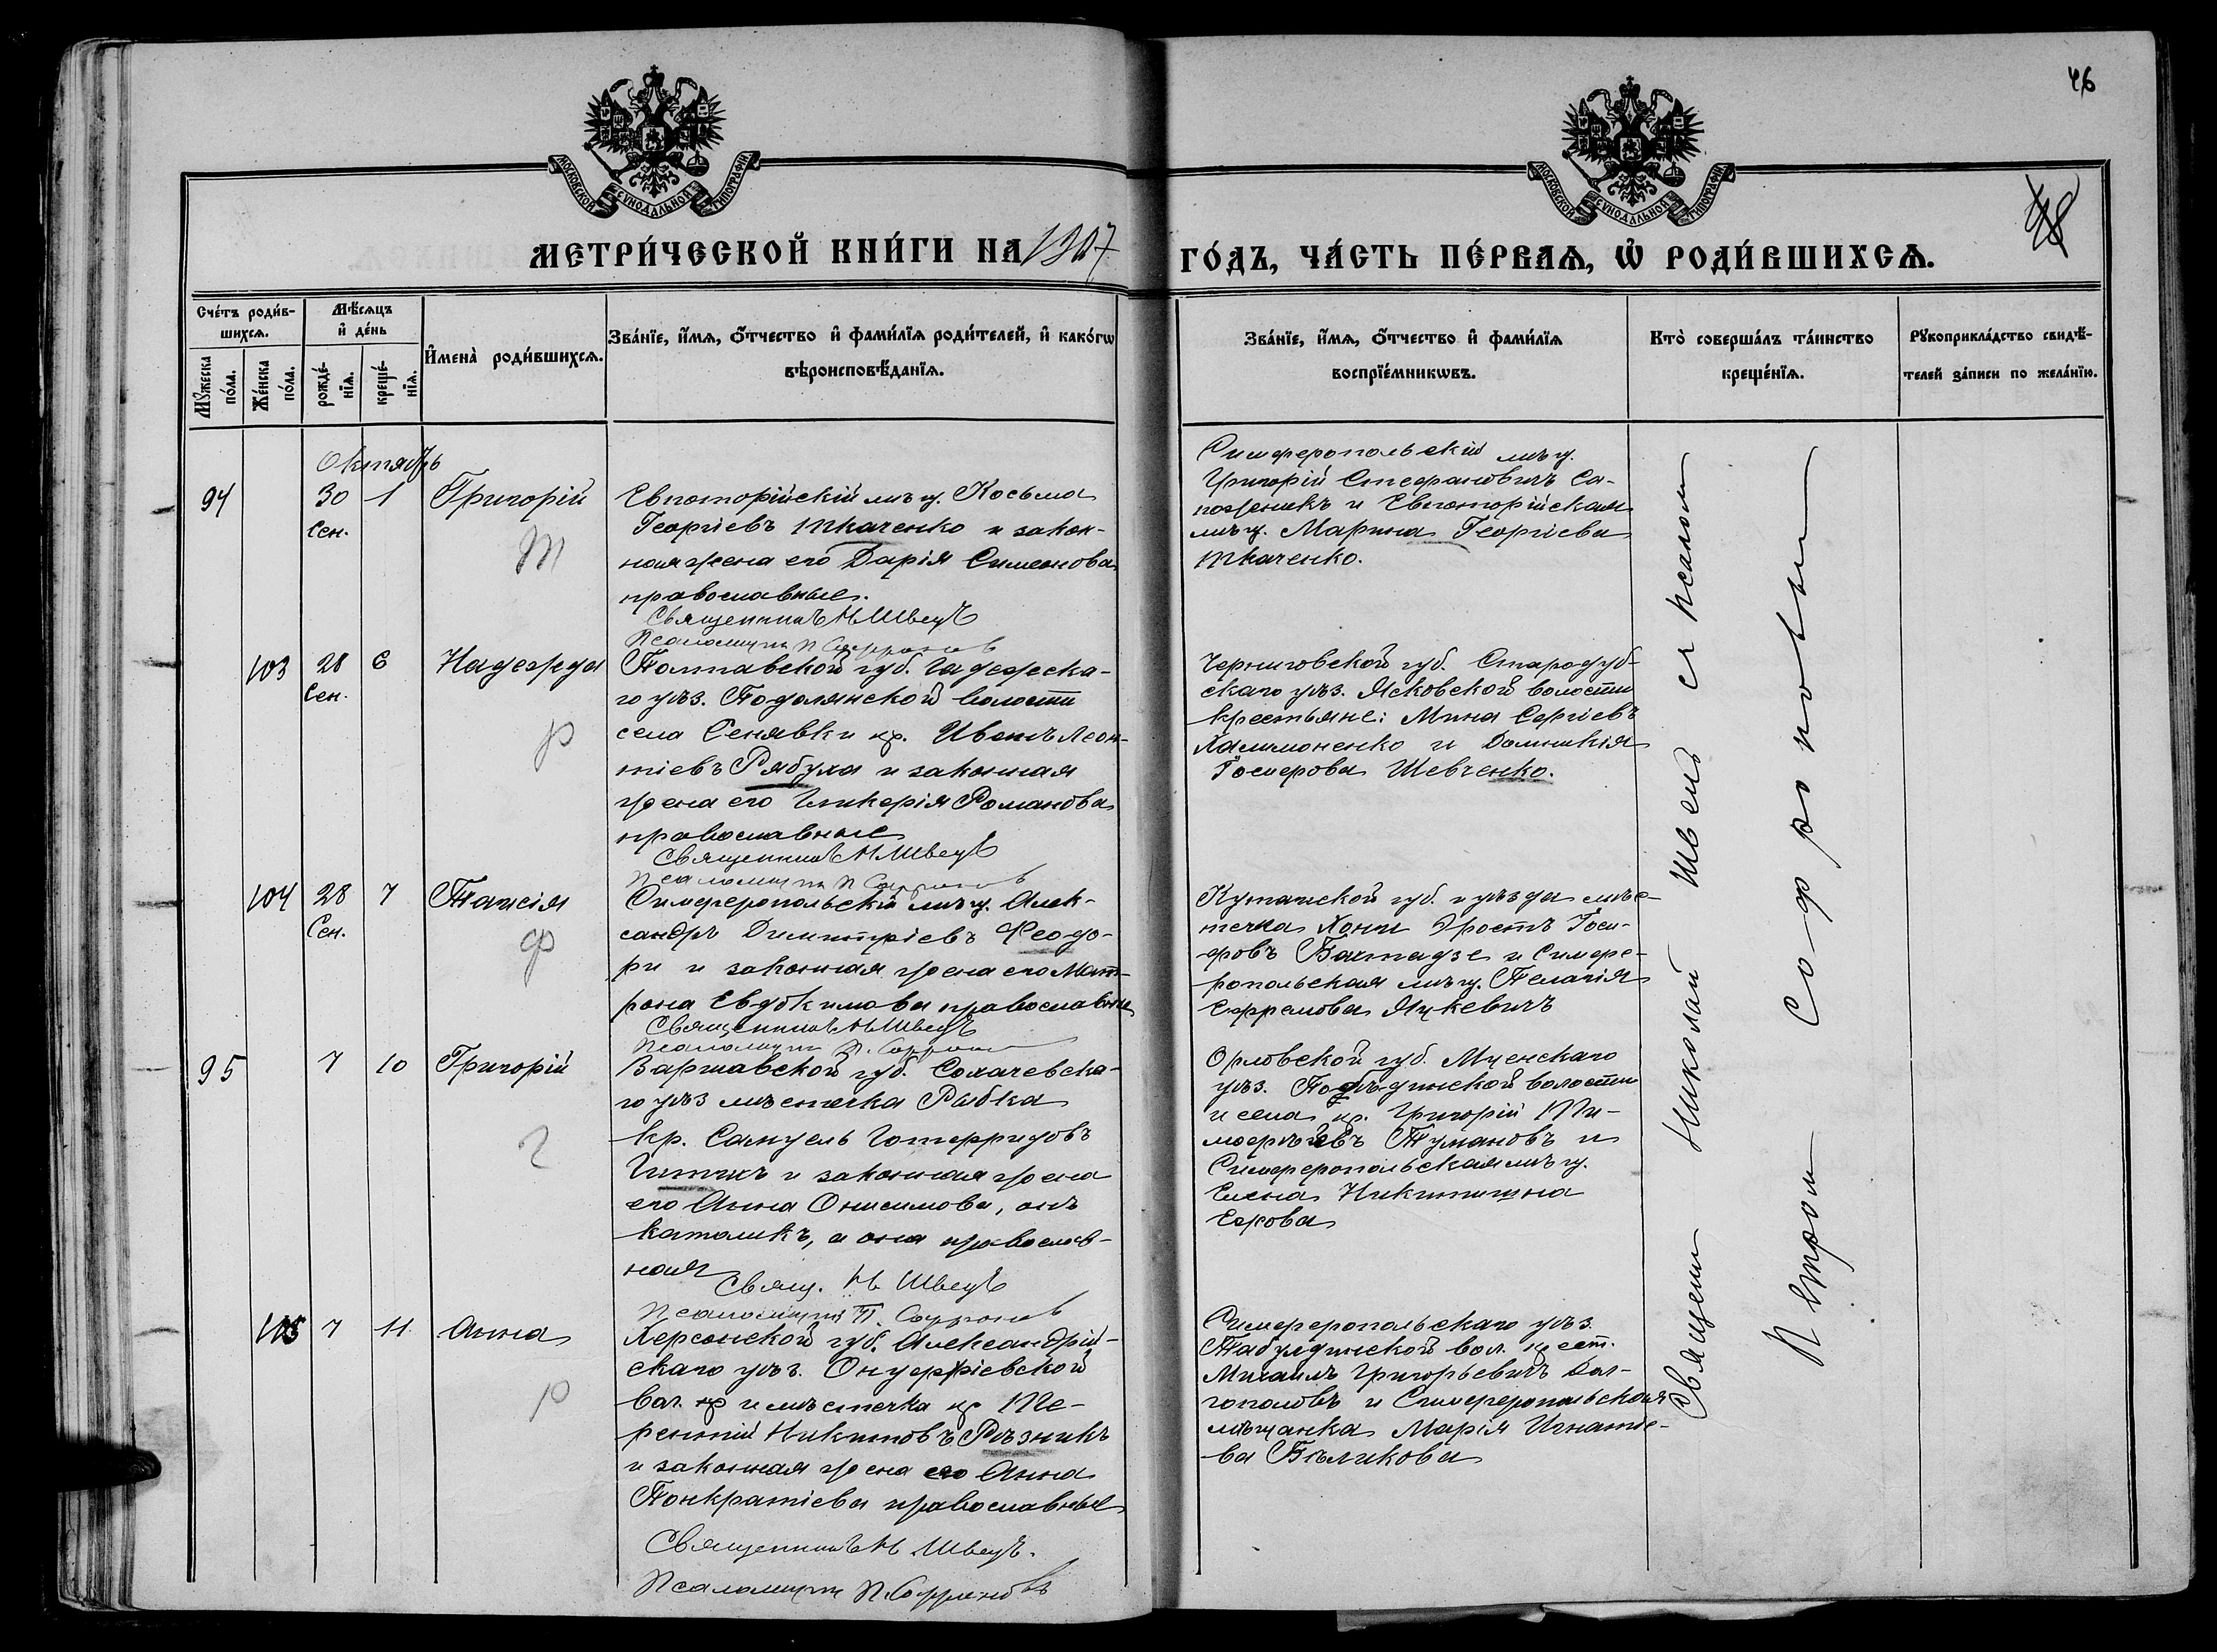 46
МОСКОВСКОЙ СѴНОДАЛЬНОЙ ТИПОГРАФІИ
МОСКОВСКОЙ СѴНОДАЛЬНОЙ ТИПОГРАФІИ
МЕТРИ́ЧЕСКОЙ КНИ́ГИ НА 1907 ГО́ДЪ, ЧА́СТЬ ПЕ́РВАѦ, Ѽ РОДИ́ВШИХСѦ.
Сче́тъ роди́в-
шихсѧ.
Мꙋжеска
по́ла.
Же́нска
по́ла.
Мѣ́сѧцъ
и҆ де́нь
рожде́-
нїѧ.
креще́-
нїѧ.
И҆мена̀ роди́вшихсѧ.
Зва́нїе, и҆́мѧ, ѻ҆́тчество и҆ фами́лїѧ роди́телей, и҆ како́гѡ
вѣроисповѣ́данїѧ.
Зва́нїе, и҆́мѧ, ѻ҆́тчество и҆ фами́лїѧ
воспрїе́мникѡвъ.
Кто̀ соверша́лъ та́инство
креще́нїѧ.
Рꙋкоприкла́дство свидѣ́-
телей за́писи по жела́нїю.
Октябрь
94
30
Сен.
1
Григорій
Т
Евпаторійскій мѣщ. Косьма
Георгіевъ Ткаченко и закон-
ная жена его Дарія Симеонова
православные.
Священникъ Н Швецъ
Псаломщикъ П Софроновъ
Симферопольскій мѣщ.
Григорій Стефановичъ Са-
пожникъ и Евпаторійская
мѣщ. Марина Георгіева
Ткаченко.
103
28
Сен.
6
Надежда
Р
Полтавской губ. Гадяческа-
го уѣз. Подолянской волости
села Сенявки кр. Иванъ Леон-
тіевъ Рябуха и законная
жена его Гликерія Романова
православные
Священникъ Н Швецъ
Псаломщикъ П Софроновъ
Черниговской губ. Стародуб-
скаго уѣз. Ясковской волости
крестьяне: Мина Сергіевъ
Халимоненко и Домникія
Шевченко.
104
28
Сен.
7
Таисія
Ф
Симферопольскій мѣщ. Алек-
сандръ Димитріевъ Феодо-
ри и законная жена его Мат-
рона Евдокимова православные
Священникъ Н Швецъ
Псаломщикъ П. Софроновъ
Кутаиской губ. и уѣзда мѣс-
течка Хони Эростъ Іоси-
фовъ Бахтадзе и Симфе-
ропольская мѣщ. Пелагія
Ефремова Яцкевичъ
95
7
10
Григорій
Г
Варшавской губ. Сохачевска-
го уѣз мѣстечка Рыбка
кр. Самуель Готфридовъ
и законная жена
его Анна Онисимова, онъ
католикъ, а она православ-
ная
Свящ. Н Швецъ
Псаломщикъ П. Софроновъ
Орловской губ. Мценскаго
уѣз. волости
и села кр. Григорій Ти-
мофѣевъ Тумановъ и
Симферопольская мѣщ.
Елена Никитишна
Ежова
105
7
11
Анна
Р
Херсонской губ. Александрій-
скаго уѣз. Онуфріевской
вол. и мѣстечка кр Те-
рентій Никитовъ Рѣзникъ
и законная жена его Анна
Панкратіева православные
Священникъ Н Швецъ.
Псаломщикъ П. Софроновъ
Симферопольскаго уѣз.
Табулдинской вол. крест.
Михаилъ Григорьевичъ Дол-
гополовъ и Симферопольская
мѣщанка Марія Игнатіе-
ва Бѣликова
Священ Николай Швецъ съ псалом
П. Софроновым